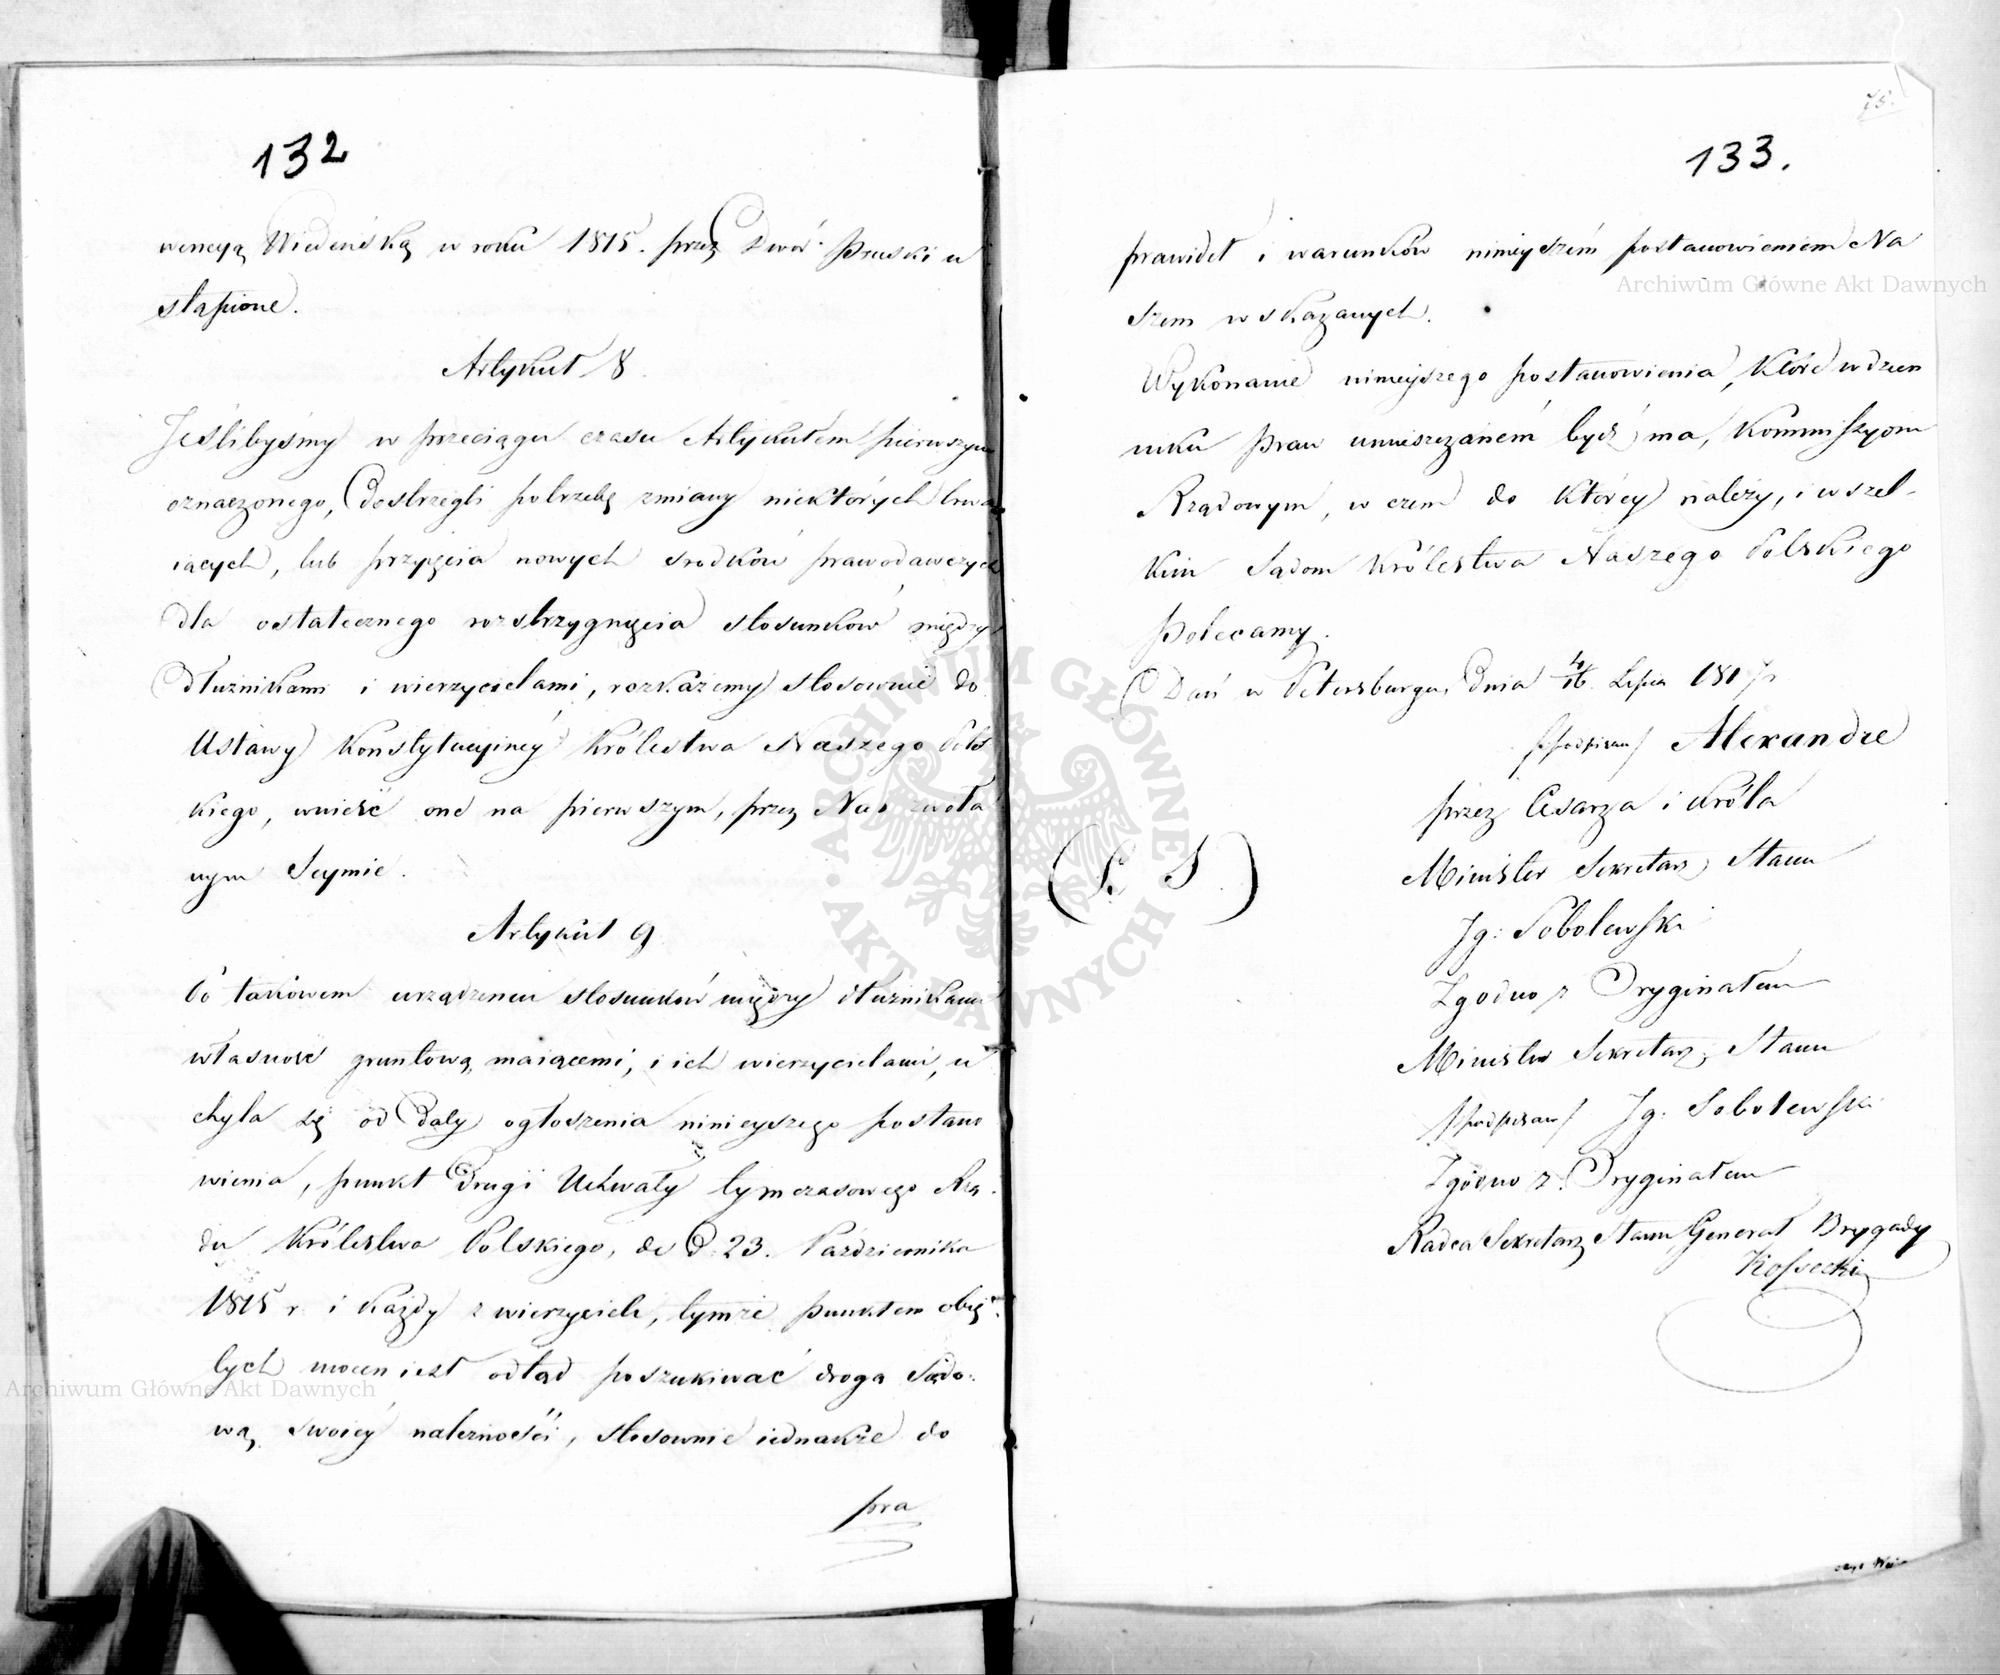 132
wencyą Wiedeńską w roku 1815. przez Dwór Pruski u
stąpione.
Artykuł 8.
Jeślibyśmy w przeciągu czasu Artykułem pierwszym
oznaczonego, dostrzegli potrzebę zmiany niektórych trwa
iących, lub przyięcia nowych srodków prawodawczych
dla ostatecznego rozstrzygnięcia stosunków między
dłużnikami i wierzycielami, rozkażemy stosownie do
Ustawy Konstytucyiney Królestwa Naszego Pols
kiego, wnieść one na pierwszym, przez Nas zwoła
nym Seymie.
Artykuł 9
Po takowem urządzeniu stosunków między dłużnikami
własność gruntową maiącemi, i ich wierzycielami, u
chyla się od daty ogłoszenia ninieyszego postano
wienia, punkt drugi Uchwały tymczasowego Rzą
du Królestwa Polskiego, de D. 23. Października
1815 r. i każdy z wierzycieli, tymże punktem obię
tych mocen iest odtąd poszukiwać drogą Sądo-
wą, swoiey należności, stosownie iednakże do
pra
75.
133.
prawideł i warunków ninieyszém postanowieniem Na
szem wskazanych.
Wykonanie ninieyszego postanowienia, które w dzien
niku praw umieszczaném bydź ma, Kommissyom
Rządowym, w czem do którey należy, i wszel-
kim Sądom Królestwa Naszego Polskiego
polecamy.
Dań w Petersburgu, dnia 4/16 Lipca 1817 r.
/podpisano/ Alexandre
przez Cesarza i Króla
Minister Sekretarz Stanu
(L. S.)
Ig: Sobolewski
Zgodno z Oryginałem
Minister Sekretarz Stanu
/podpisano/ Ig: Sobolewski
Zgodno z Oryginałem
Radca Sekretarz Stanu, Generał Brygady
Kossecki
Archiwum Główne Akt Dawnych
Archiwum Główne Akt Dawnych
ARCHIWUM GŁÓWNE AKT DAWNYCH